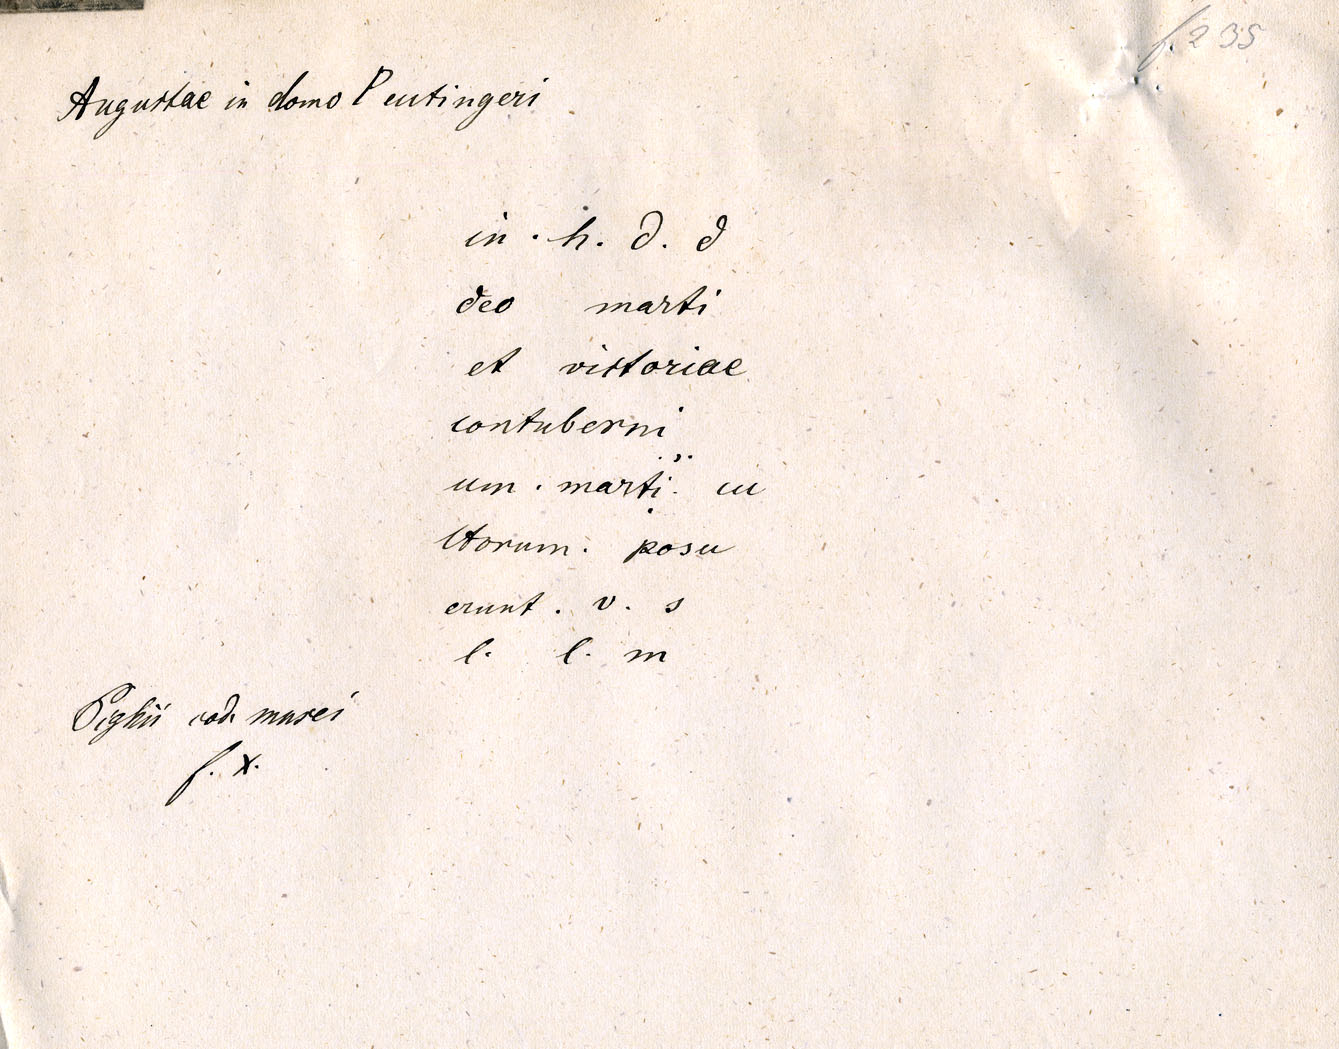 f. 235
Augustae in domo Peutingeri
in · h. d. d
deo marti
et victoriae
contuberni
um · marti. cu
ltorum. posu
erunt. v. s
l. l. m
Pighii cod. musei
f. x.